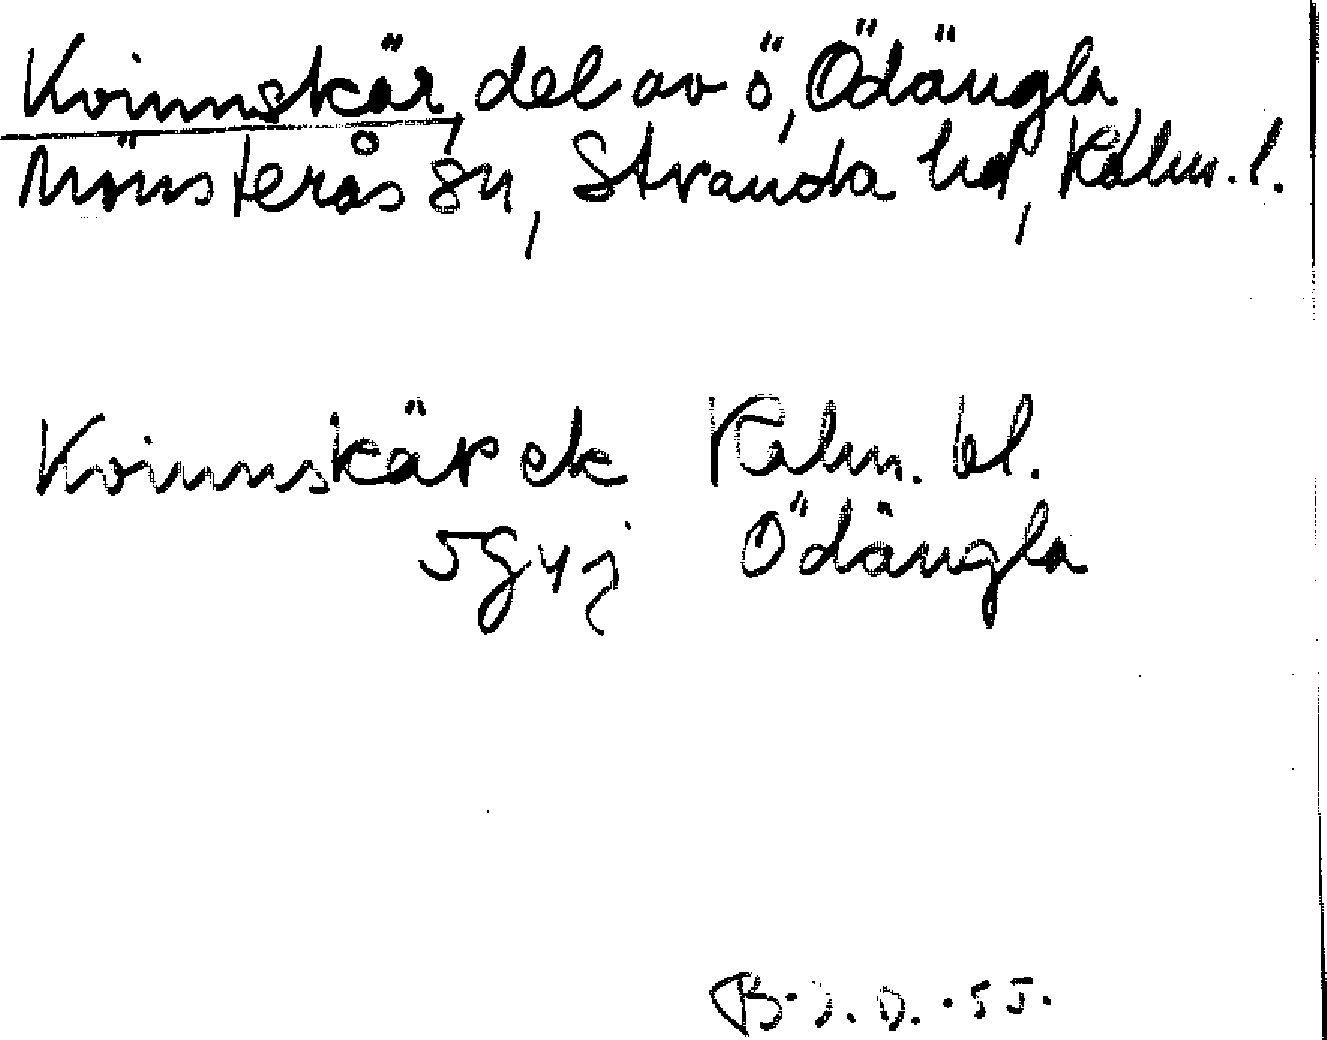 Kvinnskär, del av ö, Ödängla
Mönsterås sn, Stranda hd, Kalm. l.
Kvinnskär ek Kalm. bl.
5g4j Ödängla
B.I.D. -55.